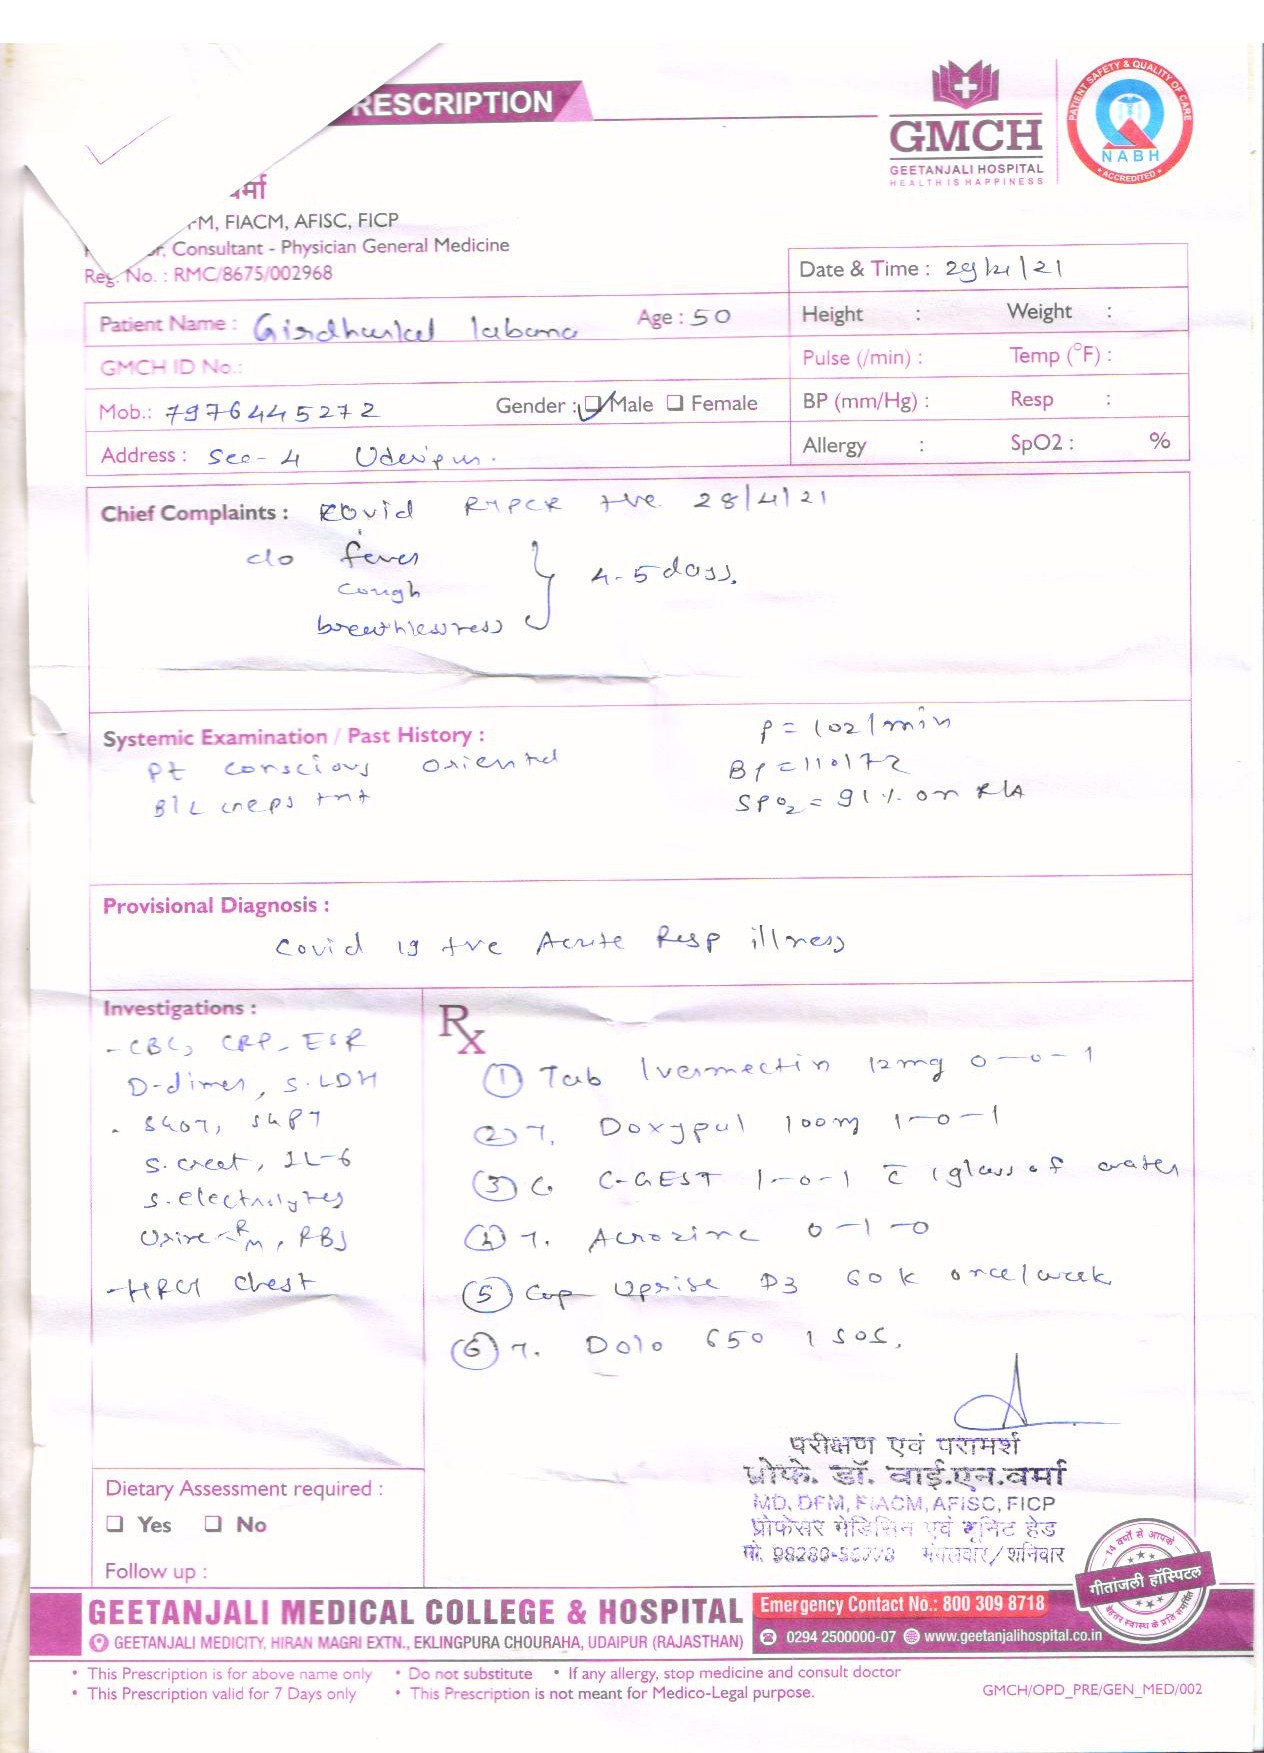 RESCRIPTION
GMCH
GEETANJALI HOSPITAL
HEALTH IS HAPPINESS
PATIENT SAFETY & QUALITY OF CARE
NABH
ACCREDITED
र्मा
M, FIACM, AFISC, FICP
Consultant - Physician General Medicine
Reg. No. : RMC/8675/002968
Date & Time : 29/4/21
Patient Name : Girdharilal labana Age : 50
Height : Weight :
GMCH ID No.:
Pulse (/min) : Temp (°F) :
Mob.: 7976445272 Gender : Male Female
BP (mm/Hg) : Resp :
Address : Sec-4 Udaipur.
Allergy : SpO2 : %
Chief Complaints : Covid RTPCR +ve 28/4/21
c/o fever
cough
breathlessness
4-5 days.
Systemic Examination / Past History :
Pt conscious oriented
B/L creps +nt
P = 102/min
BP = 110/72
SPO2 = 91% on R/A
Provisional Diagnosis :
Covid 19 +ve Acute Resp illness
Investigations :
- CBC, CRP, ESR
D-dimer, S.LDH
- SGOT, SGPT
S.creat, IL-6
S.electrolytes
Urine R/M, RBS
- HRCT Chest
Rx
① Tab Ivermectin 12mg 0-0-1
② T. Doxypal 100mg 1-0-1
③ C. C-GEST 1-0-1 c̄ 1 glass of water
④ T. Acrozinc 0-1-0
⑤ Cap Uprise D3 60K once/week
⑥ T. Dolo 650 1 SOS.
परीक्षण एवं परामर्श
प्रोफे. डॉ. वाई.एन.वर्मा
MD, DFM, FIACM, AFISC, FICP
प्रोफेसर मेडिसिन एवं यूनिट हेड
मो. मंगलवार/शनिवार
Dietary Assessment required :
Yes No
Follow up :
14 वर्षों से आपके
गीतांजली हॉस्पिटल
बेहतर स्वास्थ्य के प्रति समर्पित
GEETANJALI MEDICAL COLLEGE & HOSPITAL
GEETANJALI MEDICITY, HIRAN MAGRI EXTN., EKLINGPURA CHOURAHA, UDAIPUR (RAJASTHAN)
Emergency Contact No.: 800 309 8718
0294 2500000-07 www.geetanjalihospital.co.in
• This Prescription is for above name only • Do not substitute • If any allergy, stop medicine and consult doctor
• This Prescription valid for 7 Days only • This Prescription is not meant for Medico-Legal purpose.
GMCH/OPD_PRE/GEN_MED/002